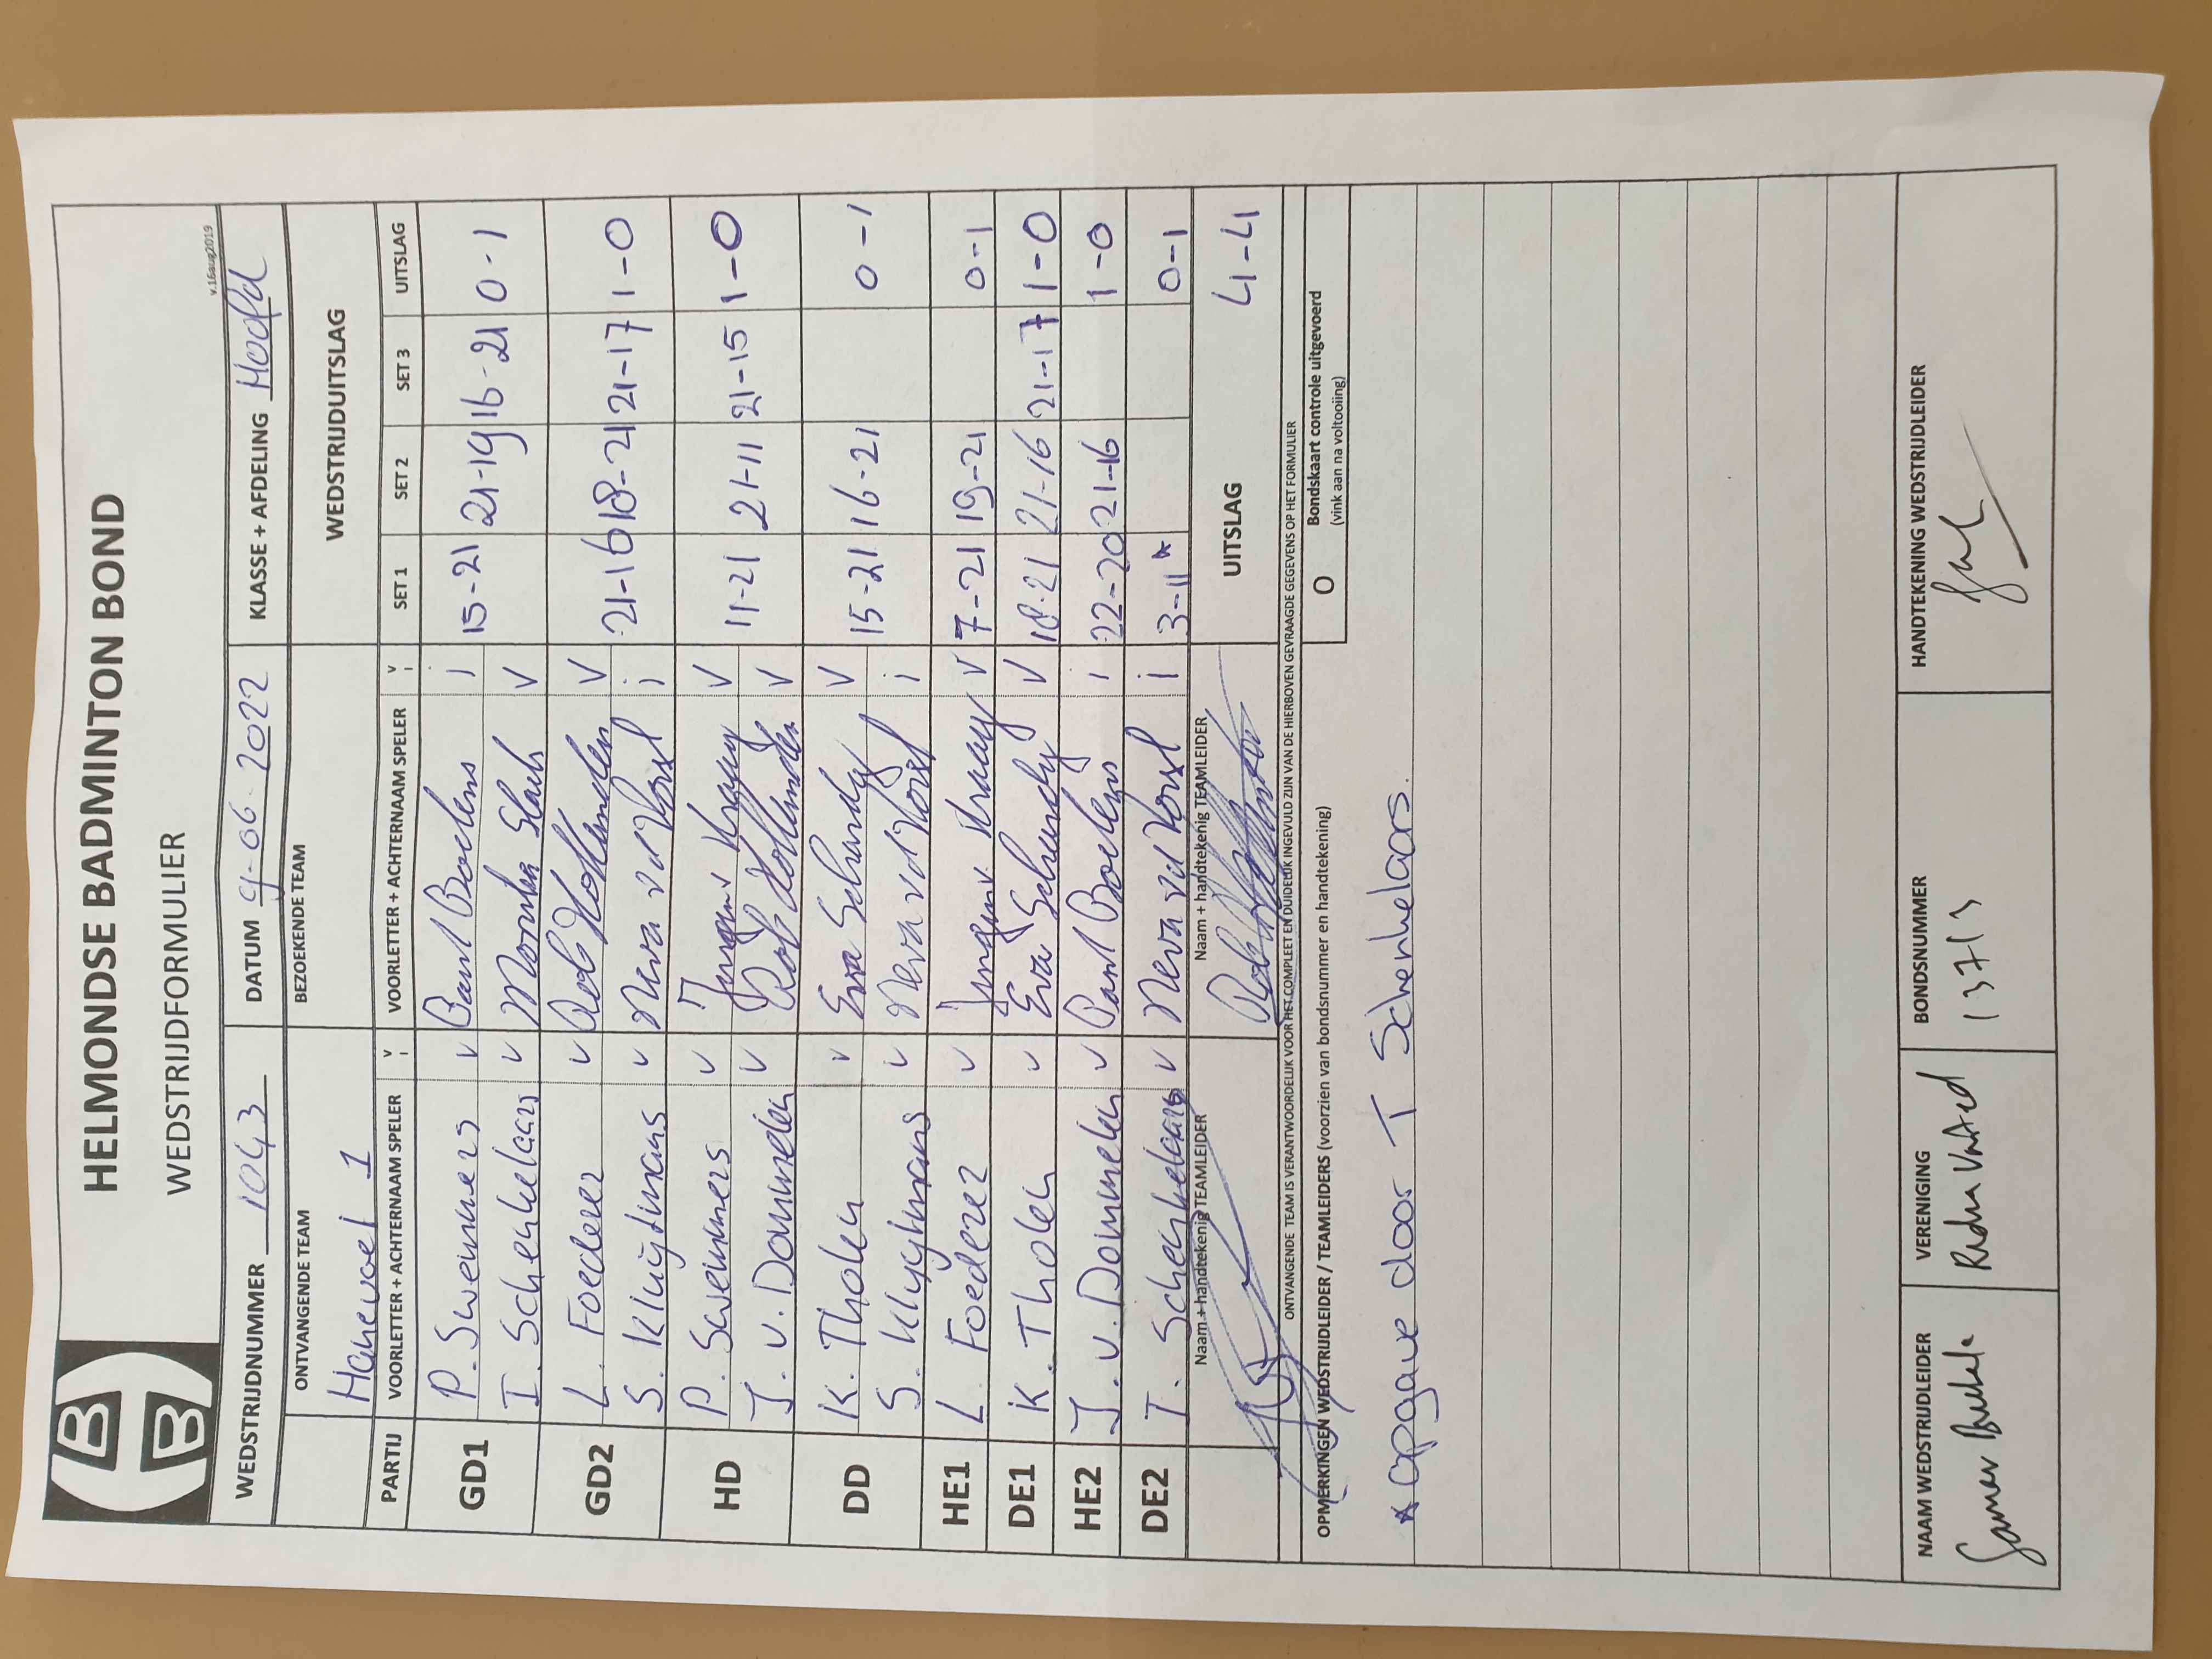 HELMONDSE BADMINTON BOND
WEDSTRIJDFORMULIER
v.16aug2019
WEDSTRIJDNUMMER 1043 DATUM 9-06-2022 KLASSE + AFDELING Hoofd
ONTVANGENDE TEAM BEZOEKENDE TEAM WEDSTRIJDUITSLAG
Hanevoet 1
PARTIJ VOORLETTER + ACHTERNAAM SPELER V i VOORLETTER + ACHTERNAAM SPELER V i SET 1 SET 2 SET 3 UITSLAG
GD1 P. Swemmers v Paul Boelens i 15-21 21-19 16-21 0-1
I. Schenkelaars v V
GD2 L. Foederer v Rob Hollander V 21-16 18-21 21-17 1-0
S. Kluijtmans v Merva vd Vorst i
HD P. Swemmers v Kraay V 11-21 21-11 21-15 1-0
J. v. Dommelen v Rob Hollander V
DD K. Tholen v Eva Schundy V 15-21 16-21 0-1
S. Kluytmans v Merva vd Vorst i
HE1 L. Foederer v Kraay V 7-21 19-21 0-1
DE1 K. Tholen v Eva Schundy V 18-21 21-16 21-17 1-0
HE2 J. v. Dommelen v Paul Boelens i 22-20 21-16 1-0
DE2 T. Schenkelaars v Merva vd Vorst i 3-11* 0-1
Naam + handtekenig TEAMLEIDER Naam + handtekenig TEAMLEIDER UITSLAG 4-4
ONTVANGENDE TEAM IS VERANTWOORDELIJK VOOR HET COMPLEET EN DUIDELIJK INGEVULD ZIJN VAN DE HIERBOVEN GEVRAAGDE GEGEVENS OP HET FORMULIER
OPMERKINGEN WEDSTRIJDLEIDER / TEAMLEIDERS (voorzien van bondsnummer en handtekening) O Bondskaart controle uitgevoerd
(vink aan na voltooiing)
* opgave door T Schenkelaars.
NAAM WEDSTRIJDLEIDER VERENIGING BONDSNUMMER HANDTEKENING WEDSTRIJDLEIDER
13713